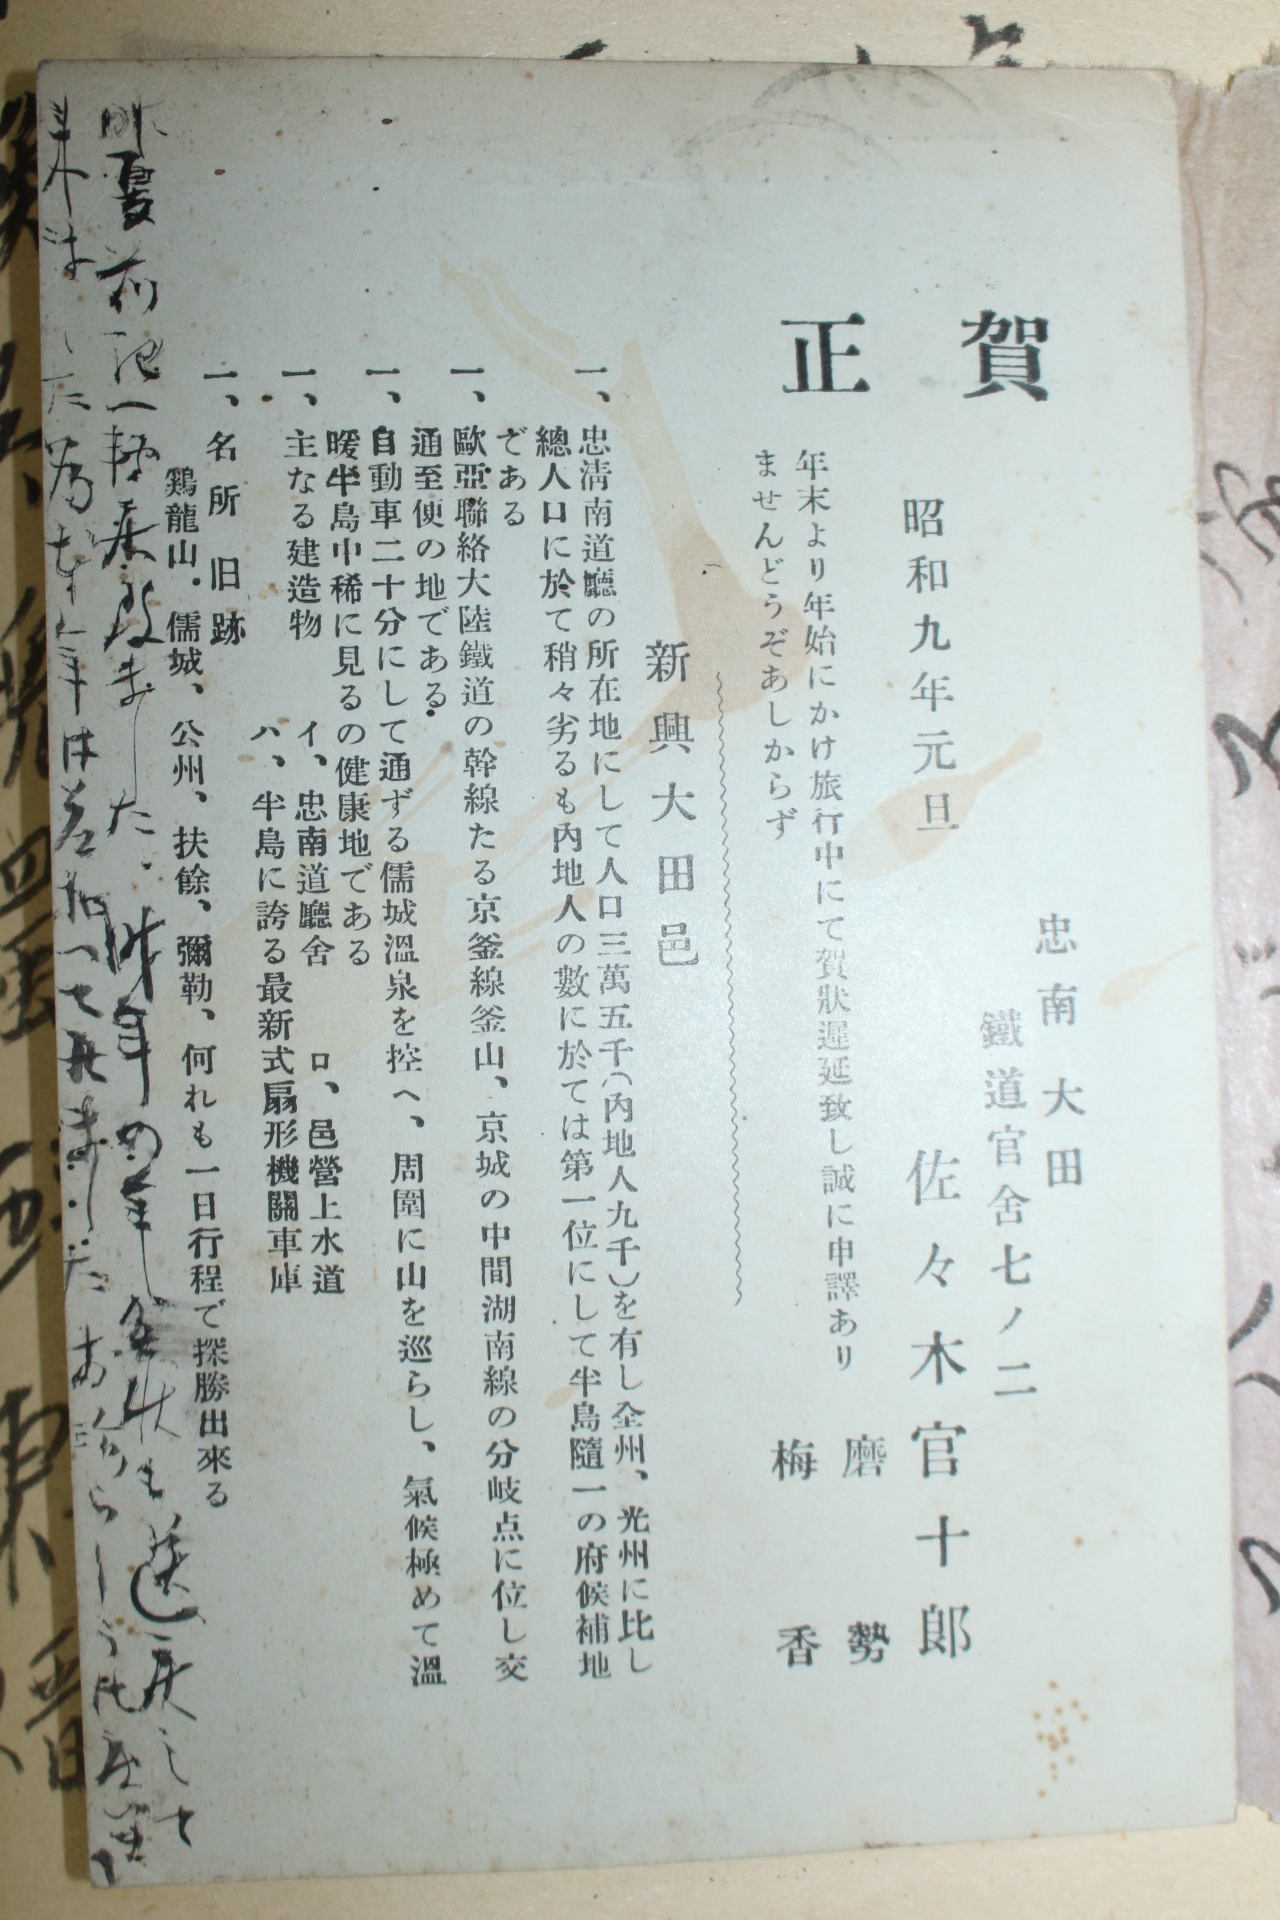 賀正
昭和九年元旦
忠南大田
鐵道官舍七ノ二
佐々木官十郎
磨勢
梅香
年末より年始にかけ旅行中にて賀狀遲延致し誠に申譯あり
ませんどうぞあしからず
新興大田邑
一、忠淸南道廳の所在地にして人口三萬五千(內地人九千)を有し全州、光州に比し
總人口に於て稍々劣るも內地人の數に於ては第一位にして半島隨一の府候補地
である
一、歐亞聯絡大陸鐵道の幹線たる京釜線釜山、京城の中間湖南線の分岐点に位し交
通至便の地である。
一、自動車二十分にして通ずる儒城溫泉を控へ、周圍に山を巡らし、氣候極めて溫
暖半島中稀に見るの健康地である
一、主なる建造物 イ、忠南道廳舍 ロ、邑營上水道
ハ、半島に誇る最新式扇形機關車庫
一、名所旧跡
鷄龍山、儒城、公州、扶餘、彌勒、何れも一日行程で探勝出來る
昨夏前記へ轉居致ました、昨年の年賀狀も返戻して
来ましたため本年は差扣へて居ましたお